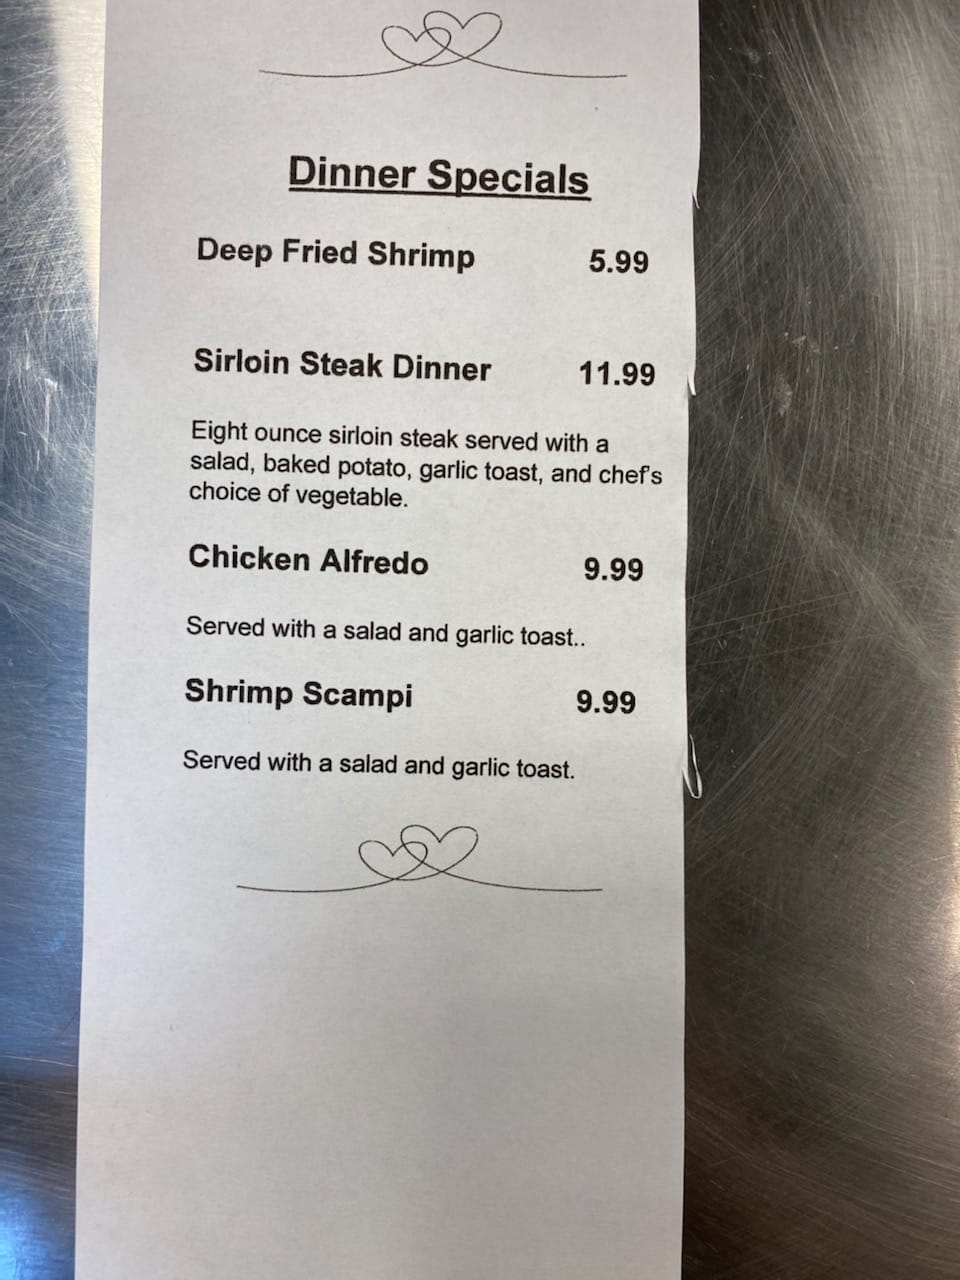 Dinner Specials
Deep Fried Shrimp 5.99
Sirloin Steak Dinner 11.99
Eight ounce sirloin steak served with a
salad, baked potato, garlic toast, and chef's
choice of vegetable.
Chicken Alfredo 9.99
Served with a salad and garlic toast..
Shrimp Scampi 9.99
Served with a salad and garlic toast.